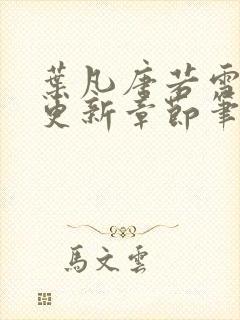 葉凡唐若雪
更新章節筆
馬文雲